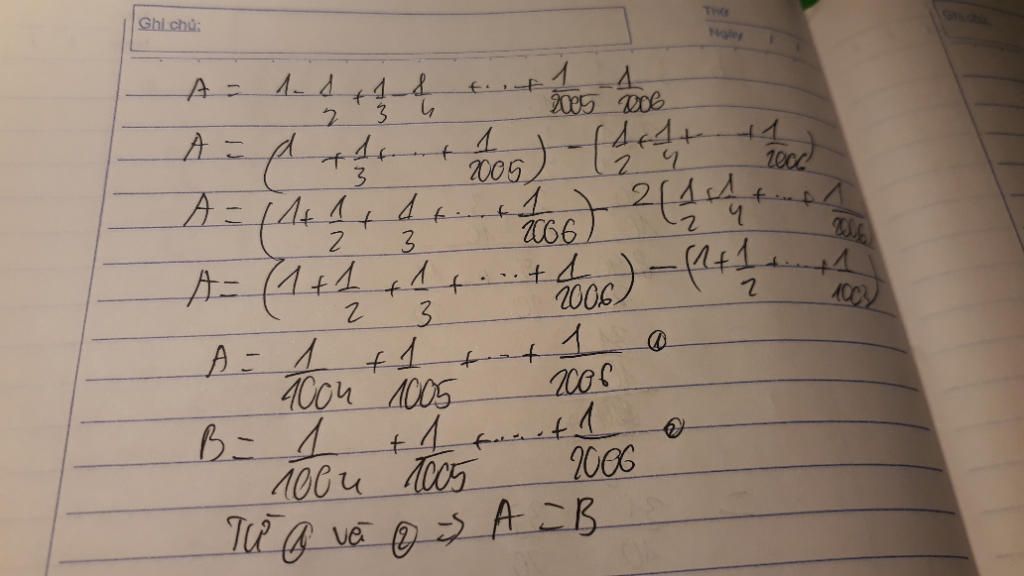 Ghi chú:
Thứ
Ngày / /
Ghi chú:
A = 1 - 1/2 + 1/3 - 1/4 + ... + 1/2005 - 1/2006
A = (1 + 1/3 + ... + 1/2005) - (1/2 + 1/4 + ... + 1/2006)
A = (1 + 1/2 + 1/3 + ... + 1/2006) - 2(1/2 + 1/4 + ... + 1/2006)
A = (1 + 1/2 + 1/3 + ... + 1/2006) - (1 + 1/2 + ... + 1/1003)
A = 1/1004 + 1/1005 + ... + 1/2006 ①
B = 1/1004 + 1/1005 + ... + 1/2006 ②
Từ ① và ② => A = B